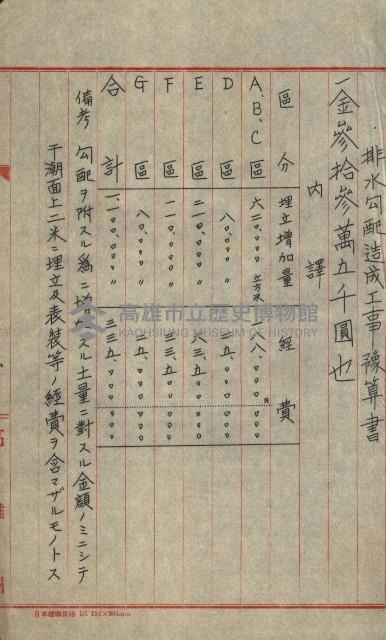 排水勾配造成工事豫算書
一金參拾參萬五千圓也
內譯
區分 埋立增加量 經費
A、B、C區 六二〇、〇〇〇立方米 一八八、〇〇〇円
D區 八〇、〇〇〇〃 二五、〇〇〇
E區 二一〇、〇〇〇〃 六三、五〇〇
F區 一一〇、〇〇〇〃 三三、五〇〇
G區 八〇、〇〇〇〃 二五、〇〇〇
合計 一、一〇〇、〇〇〇〃 三三五、〇〇〇
備考 勾配ヲ附スル爲ニ增加スル土量ニ對スル金額ノミニシテ
干潮面上二米ニ埋立及表裝等ノ經費ヲ含マザルモノトス
高雄市立歷史博物館
KAOHSIUNG MUSEUM OF HISTORY
日本標準規格